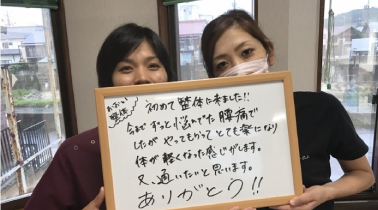 初めて整体に来ました!!
今までずっと悩んでた腰痛で
したがやってもらってとても楽になり
体が軽くなった感じがします。
又、通いたいと思います。
ありがとう!!